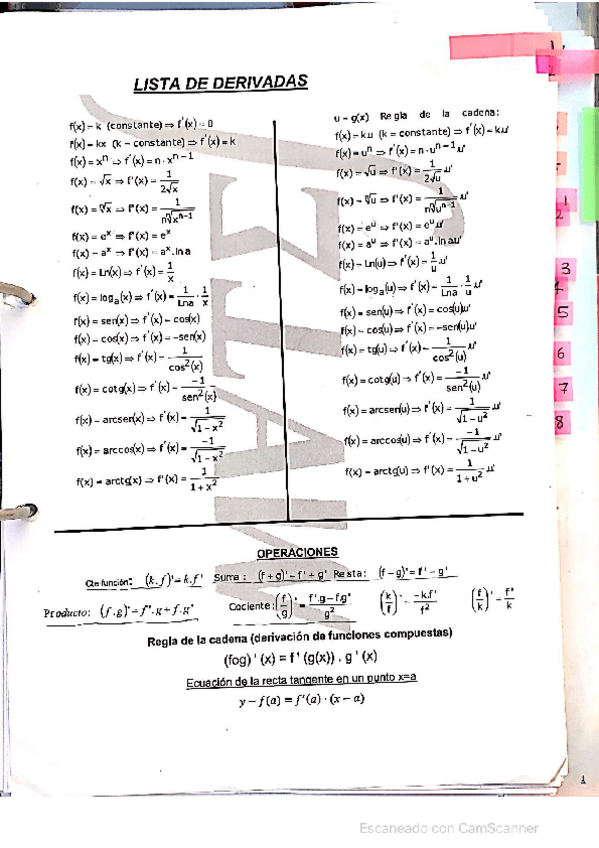 LISTA DE DERIVADAS
f(x) = k (constante) ⇒ f'(x) = 0
f(x) = kx (k = constante) ⇒ f'(x) = k
f(x) = xⁿ ⇒ f'(x) = n·xⁿ⁻¹
f(x) = √x ⇒ f'(x) = 1/(2√x)
f(x) = ⁿ√x ⇒ f'(x) = 1/(n ⁿ√xⁿ⁻¹)
f(x) = eˣ ⇒ f'(x) = eˣ
f(x) = aˣ ⇒ f'(x) = aˣ.ln a
f(x) = Ln(x) ⇒ f'(x) = 1/x
f(x) = logₐ(x) ⇒ f'(x) = 1/Lna · 1/x
f(x) = sen(x) ⇒ f'(x) = cos(x)
f(x) = cos(x) ⇒ f'(x) = -sen(x)
f(x) = tg(x) ⇒ f'(x) = 1/cos²(x)
f(x) = cotg(x) ⇒ f'(x) = -1/sen²(x)
f(x) = arcsen(x) ⇒ f'(x) = 1/√(1-x²)
f(x) = arccos(x) ⇒ f'(x) = -1/√(1-x²)
f(x) = arctg(x) ⇒ f'(x) = 1/(1+x²)
u = g(x) Regla de la cadena:
f(x) = k.u (k = constante) ⇒ f'(x) = k.u'
f(x) = uⁿ ⇒ f'(x) = n·uⁿ⁻¹.u'
f(x) = √u ⇒ f'(x) = 1/(2√u) .u'
f(x) = ⁿ√u ⇒ f'(x) = 1/(n ⁿ√uⁿ⁻¹) .u'
f(x) = eᵘ ⇒ f'(x) = eᵘ.u'
f(x) = aᵘ ⇒ f'(x) = aᵘ.ln a.u'
f(x) = Ln(u) ⇒ f'(x) = 1/u .u'
f(x) = logₐ(u) ⇒ f'(x) = 1/Lna · 1/u .u'
f(x) = sen(u) ⇒ f'(x) = cos(u)u'
f(x) = cos(u) ⇒ f'(x) = -sen(u)u'
f(x) = tg(u) ⇒ f'(x) = 1/cos²(u) .u'
f(x) = cotg(u) ⇒ f'(x) = -1/sen²(u) .u'
f(x) = arcsen(u) ⇒ f'(x) = 1/√(1-u²) .u'
f(x) = arccos(u) ⇒ f'(x) = -1/√(1-u²) .u'
f(x) = arctg(u) ⇒ f'(x) = 1/(1+u²) .u'
OPERACIONES
Cte función: (k.f)' = k.f' Suma: (f+g)' = f'+g' Resta: (f-g)' = f'-g'
Producto: (f.g)' = f'.g+f.g' Cociente: (f/g)' = (f'.g-f.g')/g² (k/f)' = -k.f'/f² (f/k)' = f'/k
Regla de la cadena (derivación de funciones compuestas)
(fog)'(x) = f'(g(x)).g'(x)
Ecuación de la recta tangente en un punto x=a
y - f(a) = f'(a)·(x - a)
3
5
6
7
8
1
Escaneado con CamScanner